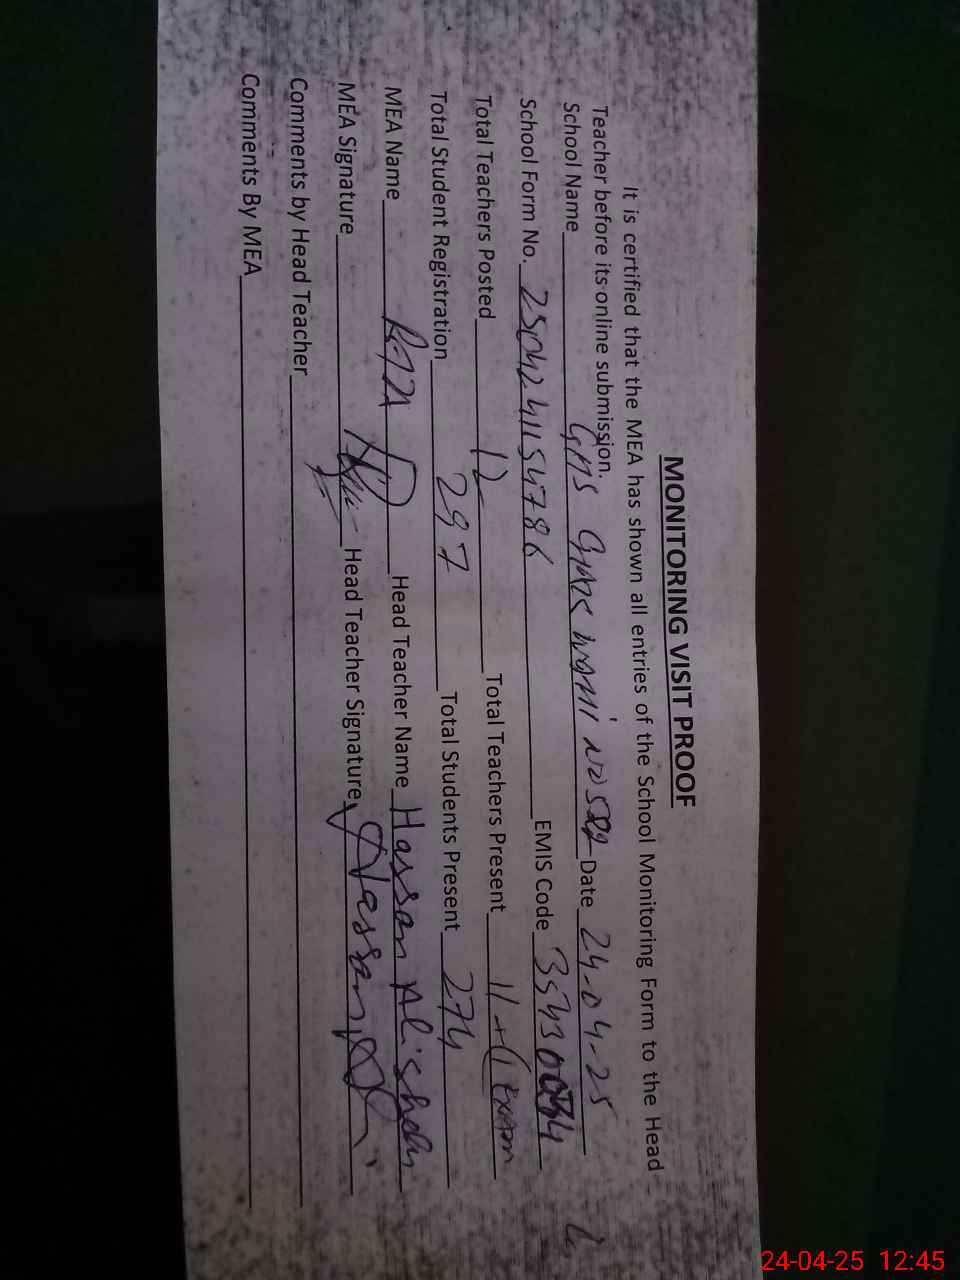 MONITORING VISIT PROOF
It is certified that the MEA has shown all entries of the School Monitoring Form to the Head
Teacher before its online submission.
School Name GMS Date 24-04-25
School Form No. 2504241154786 EMIS Code
Total Teachers Posted 12 Total Teachers Present 11+(1 Exam
Total Student Registration 297 Total Students Present 274
MEA Name Head Teacher Name Hassan Ali
MEA Signature Head Teacher Signature Hassan Ali
Comments by Head Teacher
Comments By MEA
24-04-25 12:45